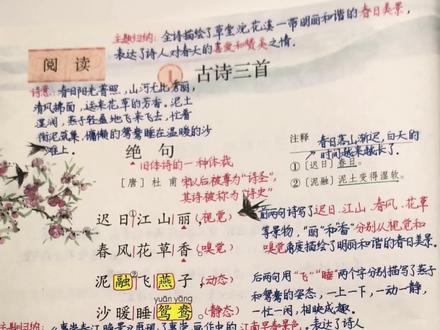 主题归纳：全诗描绘了草堂浣花溪一带明丽和谐的春日美景，
表达了诗人对春天的喜爱和赞美之情。
阅读
1 古诗三首
诗意：春日阳光普照，山河无比秀丽，
清风拂面，送来花草的芳香，泥土
湿润，燕子轻盈地飞来飞去，忙着
衔泥筑巢，慵懒的鸳鸯睡在温暖的沙
滩上。
绝句
旧体诗的一种体裁
［唐］杜甫 宋以后被尊为“诗圣”，
其诗被称为“诗史”
注释 春日落山渐迟，白天的
时间越来越长了。
①〔迟日〕春日。
②〔泥融〕泥土变得湿软。
迟日①江山丽，（视觉）
春风花草香。（嗅觉）
泥融②飞燕子，（动态）
yuān yāng
沙暖睡鸳鸯。（静态）
前两句诗写了迟日、江山、春风、花草
等景物，“丽”和“香”分别从视觉和
嗅觉角度描绘了明丽和谐的春日美景。
后两句用“飞”“睡”两个字分别描写了燕子
和鸳鸯的姿态，一上一下，一动一静，
一忙一闲，相映成趣。
主题归纳：《惠崇春江晚景》再现了惠崇画作中的江南早春景象，表达了诗人